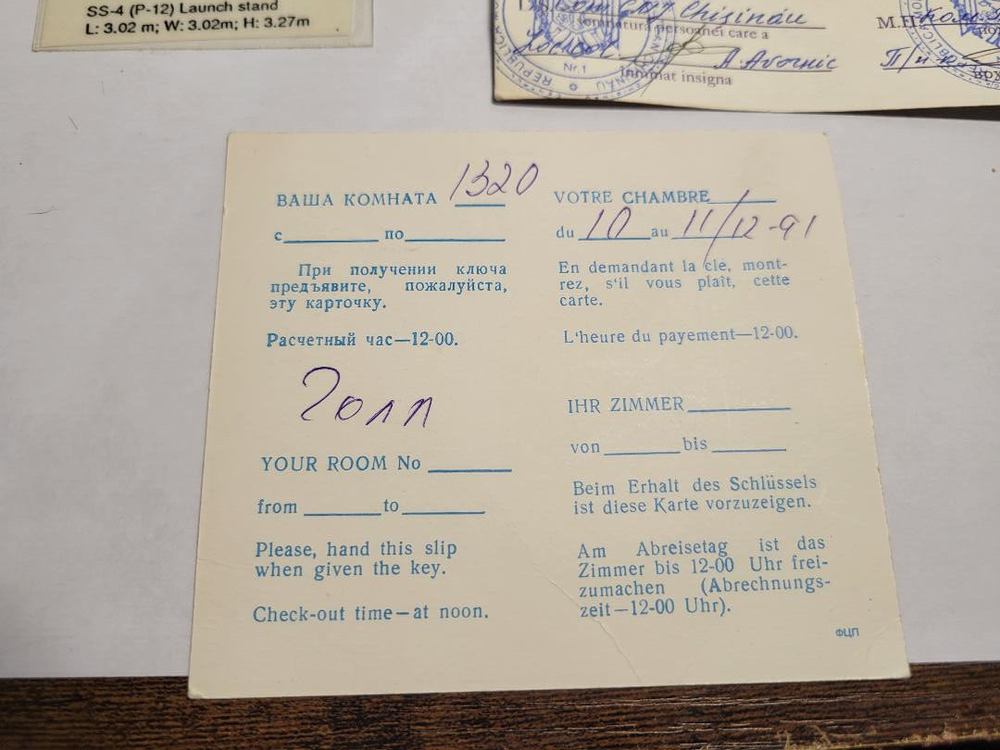 SS-4 (P-12) Launch stand
L: 3.02 m; W: 3.02m; H: 3.27m
Chişinău
semnătura persoanei care a
Nr.1
înmînat insigna
ВАША КОМНАТА 1320
с по
При получении ключа
предъявите, пожалуйста,
эту карточку.
Расчетный час—12-00.
Голл
YOUR ROOM No
from to
Please, hand this slip
when given the key.
Check-out time—at noon.
VOTRE CHAMBRE
du 10 au 11/12-91
En demandant la cle, mont-
rez, s'il vous plaît, cette
carte.
L'heure du payement—12-00.
IHR ZIMMER
von bis
Beim Erhalt des Schlüssels
ist diese Karte vorzuzeigen.
Am Abreisetag ist das
Zimmer bis 12-00 Uhr frei-
zumachen (Abrechnungs-
zeit—12-00 Uhr).
ФЦП